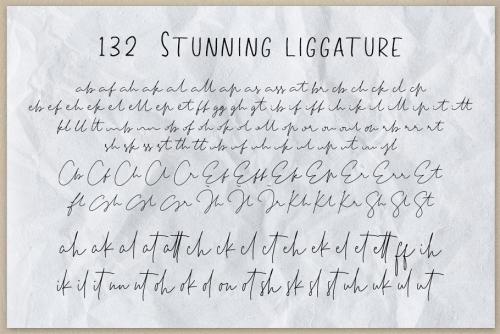 132 STUNNING LIGGATURE
ab af ah ak al all ap as ass at br cb ch ck cl cp
eb ef eh ek el ell ep et ff gg gh gt ib if iff ih ik il ill ip it itt
kl ll lt mb mm ob of oh ok ol oll op or ou out ou rb rr rt
sh sk ss st th tt ub uf uh uk ul up ut
Cb Cf Ch Cl Cr Ef Eff Ek Ep Er Err Et
fl Gh Gl Gr Jh Jl Jr Kh Kl Kr Sh Sl St
ah ak al at att ch ck cl ct eh ek el et ett ff ih
ik il it nn nt oh ok ol ou ot sh sk sl st uh uk ul ut